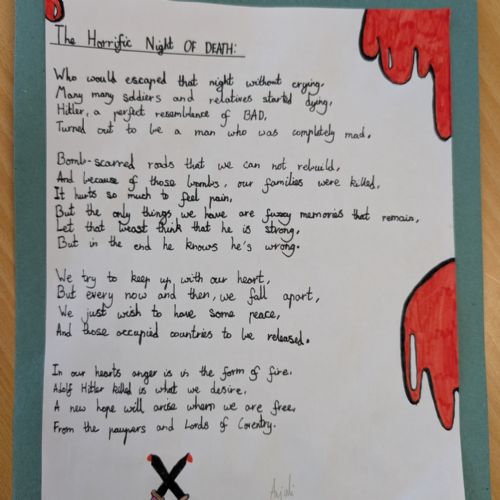 The Horrific Night OF DEATH:
Who would escaped that night without crying,
Many many soldiers and relatives started dying,
Hitler, a perfect resemblance of BAD,
Turned out to be a man who was completely mad.
Bomb-scarred roads that we can not rebuild,
And because of those bombs, our families were killed,
It hurts so much to feel pain,
But the only things we have are fuzzy memories that remain,
Let that beast think that he is strong,
But in the end he knows he's wrong.
We try to keep up with our heart,
But every now and then, we fall apart,
We just wish to have some peace,
And those occupied countries to be released.
In our hearts anger is in the form of fire,
Adolf Hitler killed is what we desire,
A new hope will arise when we are free,
From the paupers and Lords of Coventry.
Anjali